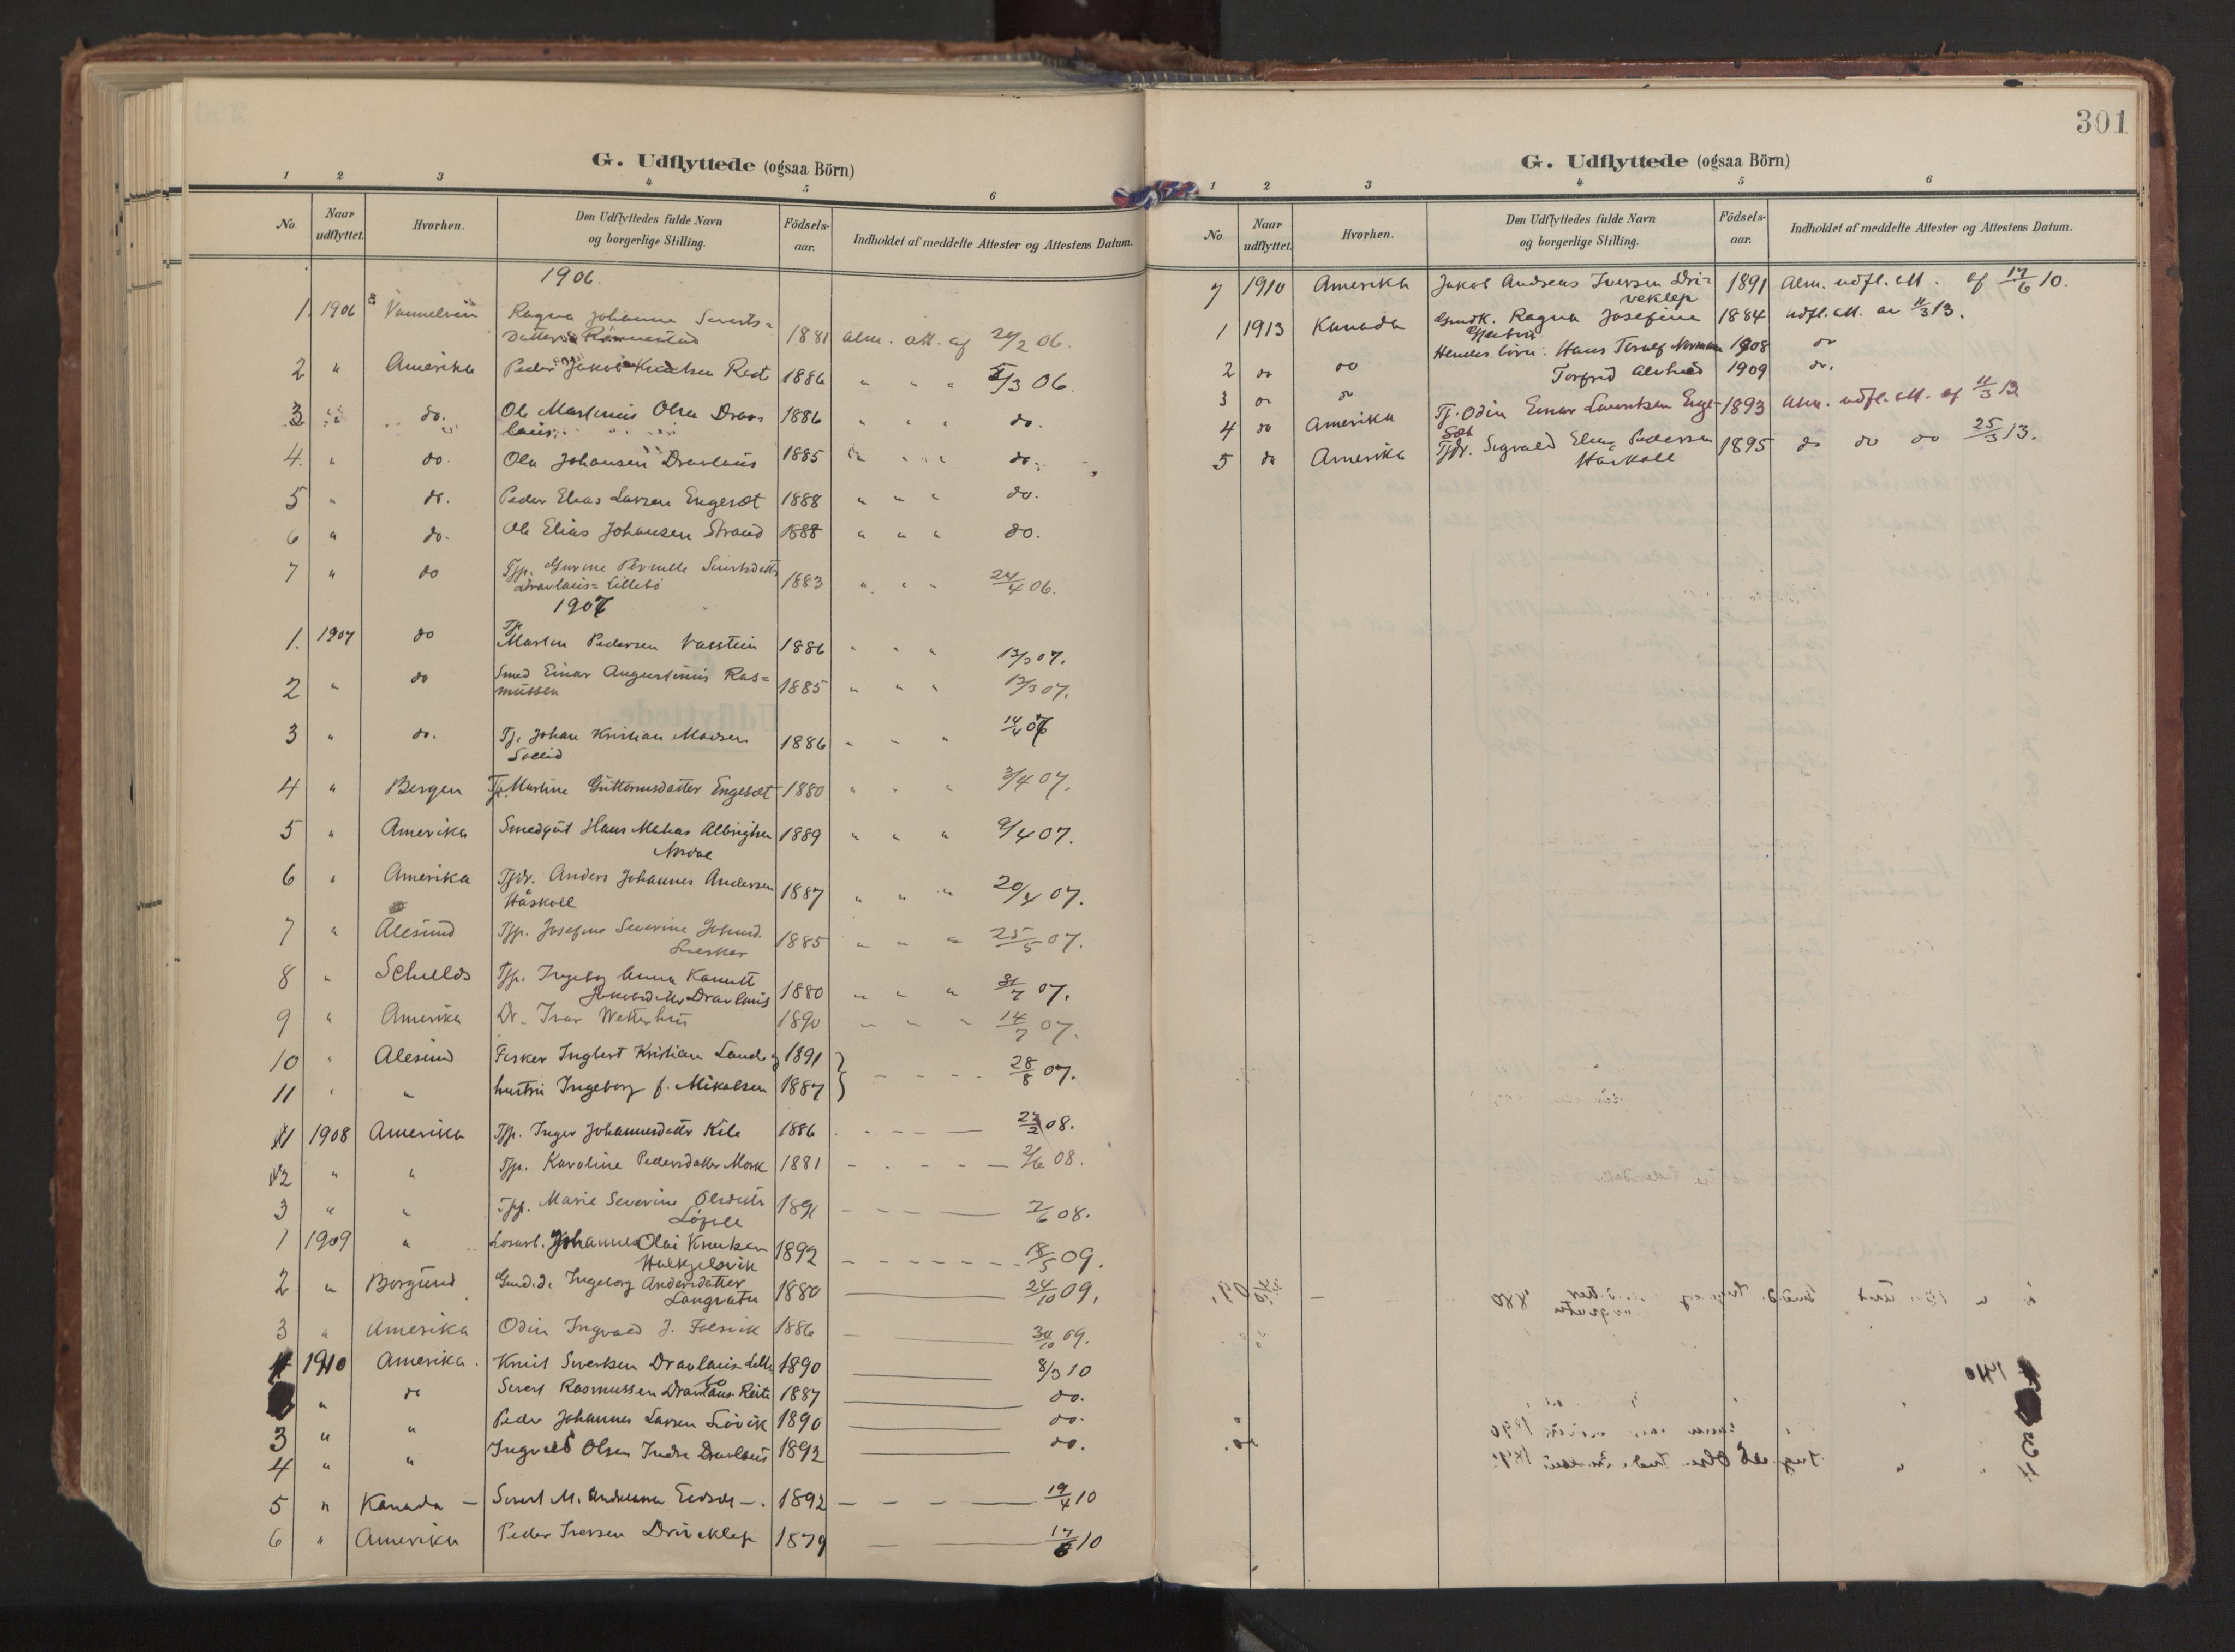 G. Udflyttede (ogsaa Börn)
1 2 3 4 5 6
No. Naar udflyttet. Hvorhen. Den Udflyttedes fulde Navn og borgerlige Stilling. Födsels-aar. Indholdet af meddelte Attester og Attestens Datum.
1906.
1. 1906 Ragna Johanne Severts=
datter 1881 alm. att. af 24/2 06.
2 " Amerika Peder Jakob Knudsen 1886 " " " 5/3 06.
3 " do. Ole Martinus Olsen Drav
laus 1886 " " " do.
4. " do. Ola Johansen Dravlaus 1885 " " " do.
5 " do. Peder Elias Larsen Engeset 1888 " " " do.
6 " do. Ole Elias Johansen Strand 1888 " " " do.
7 " do Tjp. Gurine Pernille Sivertsdatter
Dravlaus= Lillebö 1883 " " " 24/4 06.
1907
1. 1907 do Tj. Martin Pedersen Vasstein 1886 " " " 13/3 07.
2 " do Smed Einar Augustinus Ras=
mussen 1885 " " " 13/3 07.
3 " do. Tj. Johan Kristian Madsen
1886 " " " 14/4 07
4 " Bergen Tjp. Martine Guttormsdatter Engeset 1880 " " " 3/4 07.
5 " Amerika Smedgut Hans Mathias Albrigtsen
Nordal 1889 " " " 9/4 07.
6 " Amerika Tjdr. Anders Johannes Andersen
Håskoll 1887 " " " 20/4 07.
7 " Ålesund Tjp. Josefine Severine
1885 " " " 25/5 07.
8 " Tjp. Ingeborg Anna
Jakobsdatter Dravlaus 1880 " " " 31/7 07.
9 " Amerika Dr. Ivar Wetterhus 1890 " " " 14/7 07.
10 " Ålesund Fisker Ingbert Kristian Lande og 1891 } 28/8 07.
11 " " hustru Ingeborg f. Mikalsen 1887 }
1 1908 Amerika Tjp. Inger Johannesdatter Kile 1886 - - - - 08.
2 " " Tjp. Karoline Pedersdatter Mork 1881 - - - - 2/6 08.
3 " " Tjp. Marie Severine Olsdatter
1891 - - - 2/6 08.
1 1909 " Johannes Olai Knutsen
Halkjelsvik 1892 - - - - 18/5 09.
2 " Borgund Gmd.d. Ingeborg Andersdatter
Langvatn 1880 — 24/10 09.
3 " Amerika Odin Ingvald J. Folsvik 1886 — 30/10 09.
1 1910 Amerika. Knut Sivertsen Dravlaus-Lille
bö 1890 — 8/3 10
" do Sivert Rasmussen Dravlaus-Reite 1887 — do.
3 " " Peder Johannes Larsen Lövik 1890 — do.
4 " " Ingvald Olsen Indre Dravlaus 1892 — do.
5 " Kanada — Sivert M. Andreassen 1892 — 19/4 10
6 " Amerika Peder Iversen Driveklep 1879 — 17/6 10
301
G. Udflyttede (ogsaa Börn)
1 2 3 4 5 6
No. Naar udflyttet. Hvorhen. Den Udflyttedes fulde Navn og borgerlige Stilling. Födsels-aar. Indholdet af meddelte Attester og Attestens Datum.
7 1910 Amerika Jakob Andreas Iversen Dri=
veklep 1891 Alm. udfl. att. af 17/6 10.
1 1913 Kanada Gmdk. Ragna Josefine 1884 udfl. att. av 11/3 13.
2 do do Hendes börn: Hans Toralf Norman 1908 do
3 do do Torfrid 1909 do.
4 do Amerika Tj. Odin Einar Lauritsen Enge-
set 1893 alm. udfl. att. af 11/3 13
5 do Amerika Tjdr. Sigvald Elias Pedersen
Håskoll 1895 do do do 25/3 13.